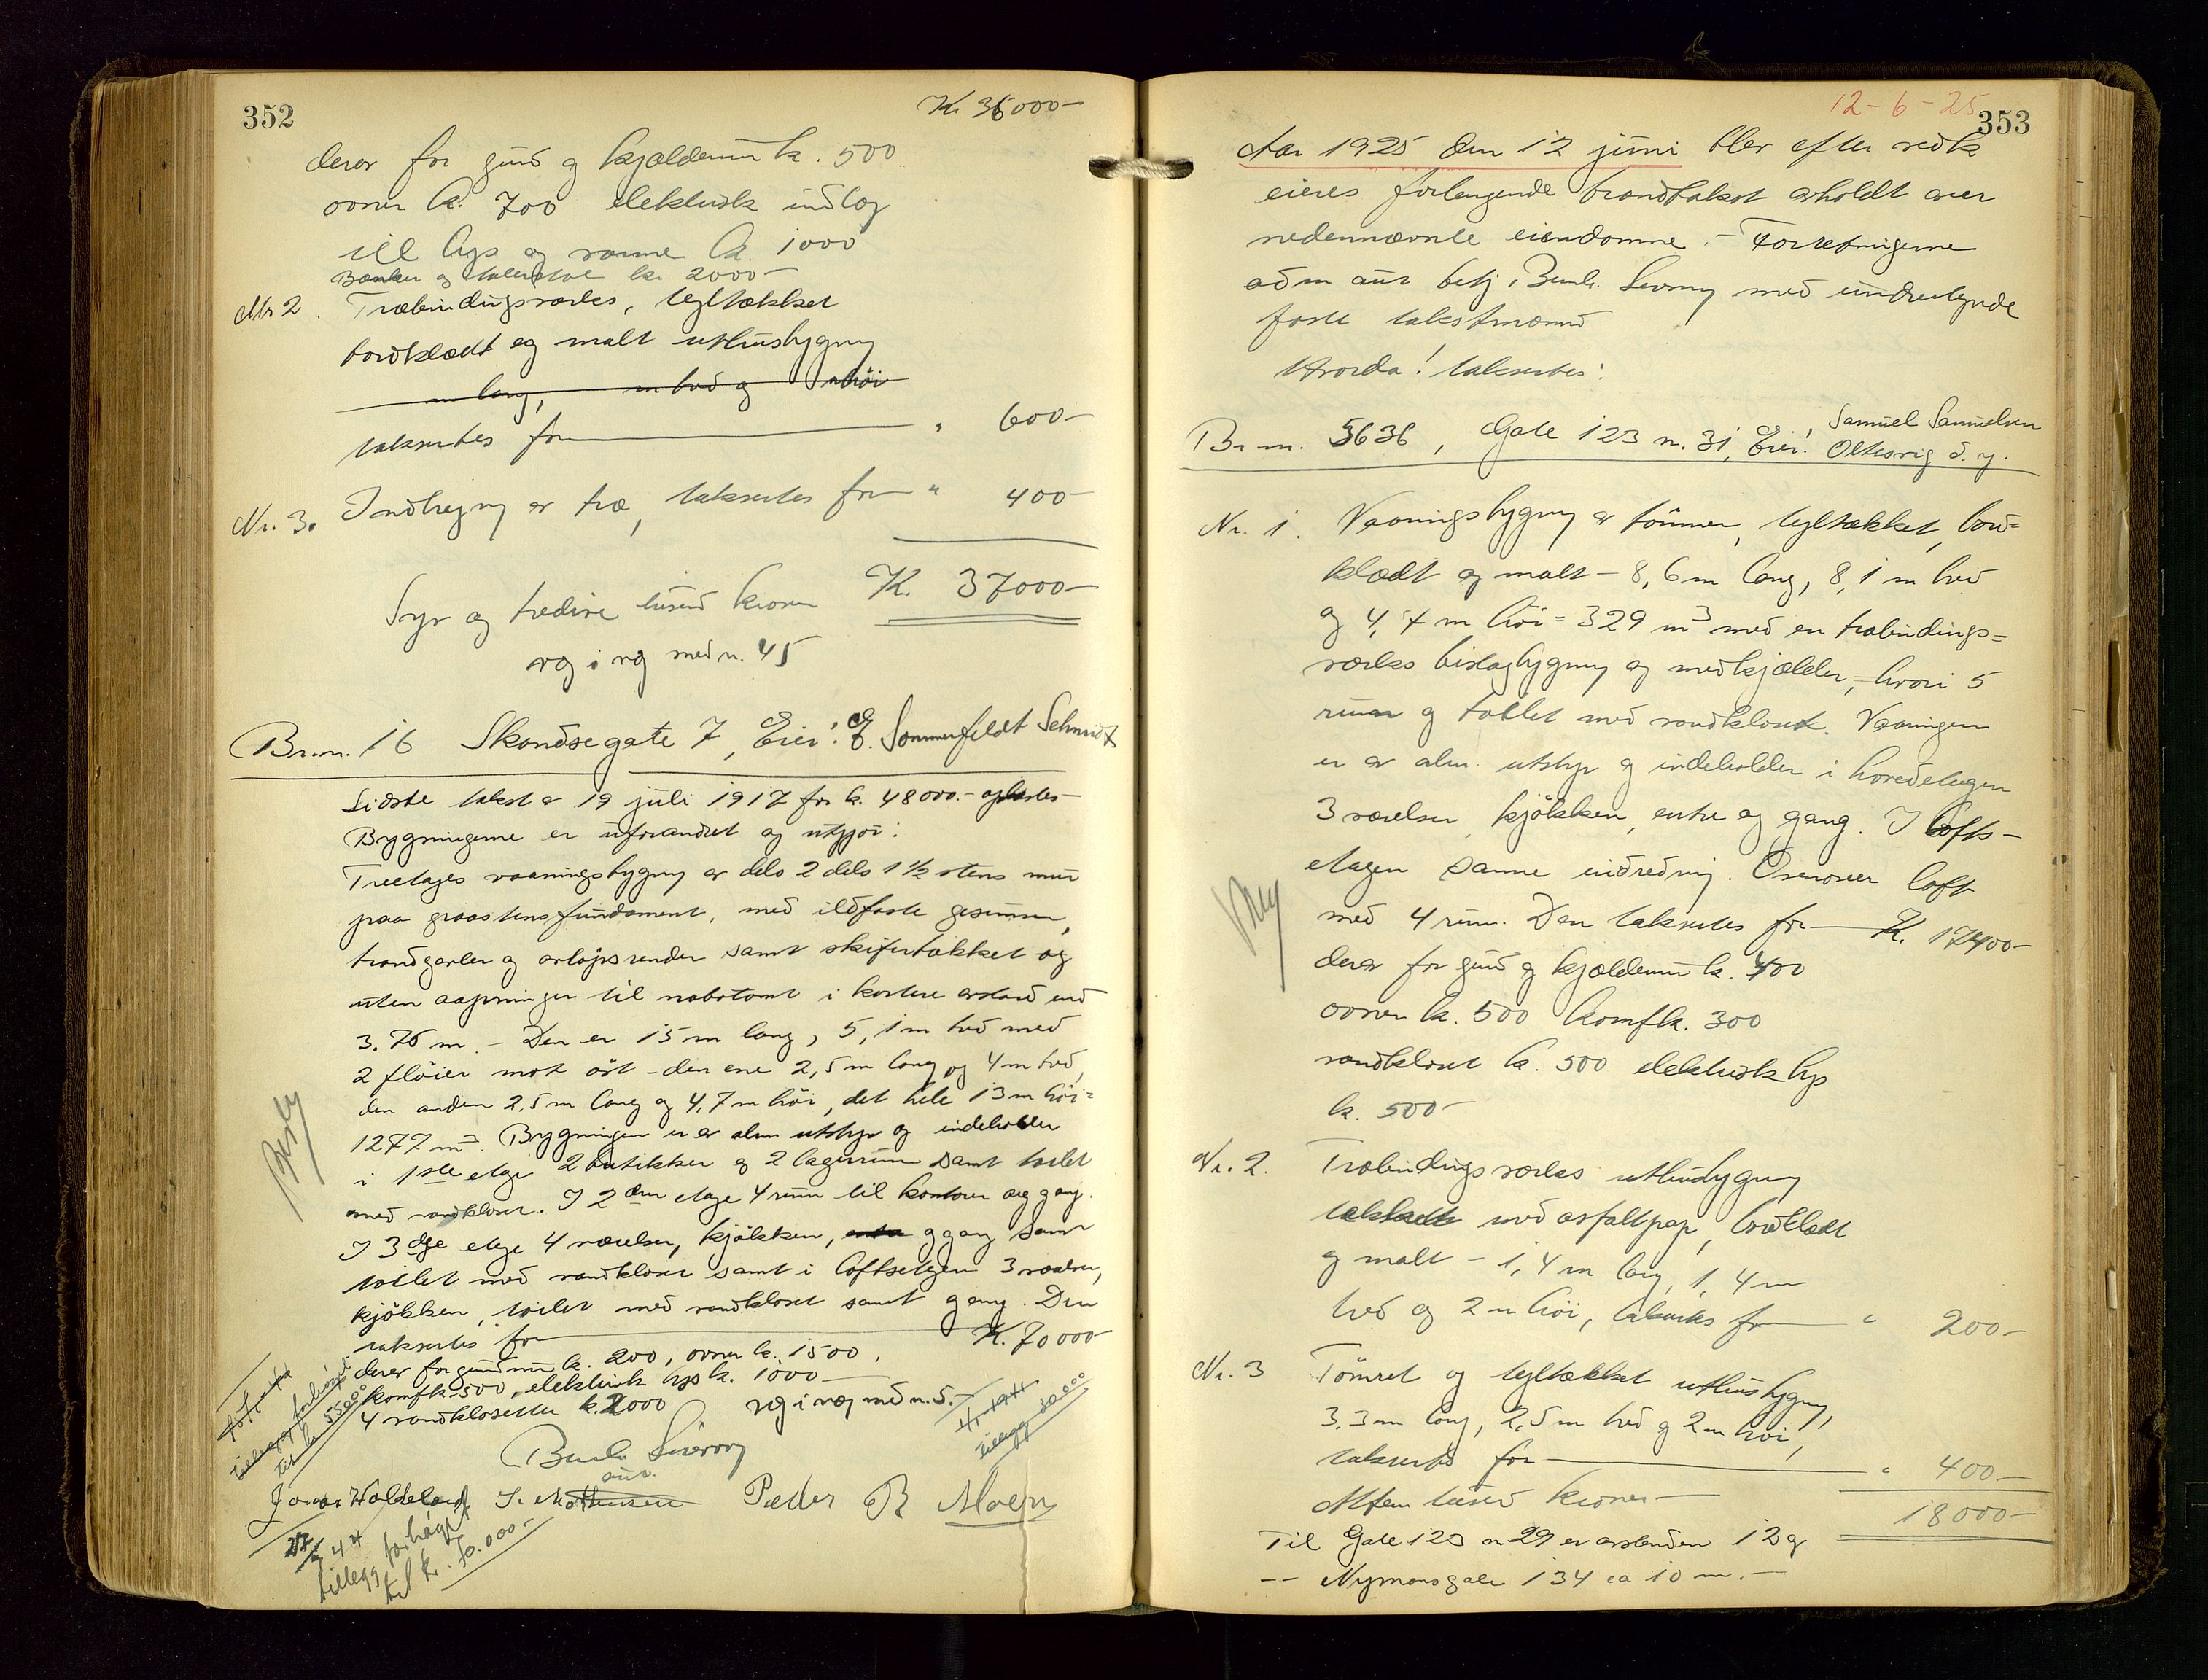 352
K. 36000-
derav for grund og kjælderrum k. 500
ovner k. 700 elektrisk indlæg
til lys og varme k. 1000
Bænker og talerstol kr. 2000-
Nr 2. Træbindingsverks, tegltækket
bordklædt og malt uthusbygning
m lang, m bred og m høi
takseres for " 600-
Nr. 3. Indhegning av træ, takseres for " 400-
K. 37000-
Syv og tredive tusend kroner
væg i væg med n. 45
Br.n. 16 Skandsegate 7, Eier: E. Sommerfeldt Schmidt
Sidste takst av 19 juli 1917 for k. 48000.- oplæstes
Bygningerne er uforandret og utgjør:
Treetages vaaningsbygning av dels 2 dels 1 1/2 stens mur
paa graastensfundament, med ildfaste gesimser,
brandgavler og avløpsrender samt skifertækket og
uten aapninger til nabotomt i kortere avstand end
3.76 m. - Den er 15 m lang, 5,1 m bred med
2 fløier mot øst - den ene 2,5 m lang og 4 m bred,
den anden 2,5 m lang og 4,7 m høi, det hele 13 m høi =
1277 m3 Bygningen er av alm utstyr og indeholder
i 1ste etage 2 butikker og 2 lagerrum samt toilet
med vandkloset. I 2den etage 4 rum til kontorer og gang.
I 3dje etage 4 værelser, kjøkken, entre og gang samt
toilet med vandkloset samt i loftsetagen 3 værelser,
kjøkken, toilet med vandkloset samt gang. Den
takseres for K. 70000-
derav for grundmur k. 200, ovner k. 1500,
komf k. 500, elektrisk lys k. 1000-
4 vandklosetter k. 2000 væg i væg med n. 5.-
tillegg forhøiet
til kr. 5500
1941
tillegg 30.000
Bernh. Sivering
aut.
Jonas Waldeland S. Mathiesen Peder B Moen
27/7 44
tillegg forhøgt
til kr. 70.000.-
12-6-25
353
Aar 1925 den 12 juni blev efter vedk
eieres forlangende brandtakst avholdt over
nedennævnte eiendomme. - Forretningerne
adm aut betj. Bernh. Sivering med undertegnede
faste takstmænd
Hvorda! takseres:
Br.n. 3636, Gate 123 n. 31, Eier: Samuel Samuelsen
Oltesvig d. y.
Nr. 1. Vaaningsbygning av tømmer, tegltækket, bord=
klædt og malt - 8,6 m lang, 8,1 m bred
og 4,7 m høi = 329 m3 med en træbindings=
verks bislagbygning og med kjælder, hvori 5
rum og toilet med vandkloset. Vaaningen
er av alm. utstyr og indeholder i hovedetagen
3 værelser, kjøkken, entre og gang. I lofts-
etagen samme indredning. Ovenover loft
med 4 rum. Den takseres for K. 17400-
derav for grund og kjælderrum k. 400
ovner k. 500 komf k. 300
vandkloset k. 500 elektrisk lys
k. 500-
Nr. 2. Træbindingsverks uthusbygning
tækket med asfaltpap, bordklædt
og malt - 1,4 m lang, 1,4 m
bred og 2 m høi, takseres for " 200-
Nr. 3 Tømret og tegltækket uthusbygning,
3.3 m lang, 2,5 m bred og 2 m høi,
takseres for " 400-
Atten tusend kroner- 18000-
Til Gate 123 n 29 er avstanden 12 og
-- Nymansgate 134 ca 10 m.-